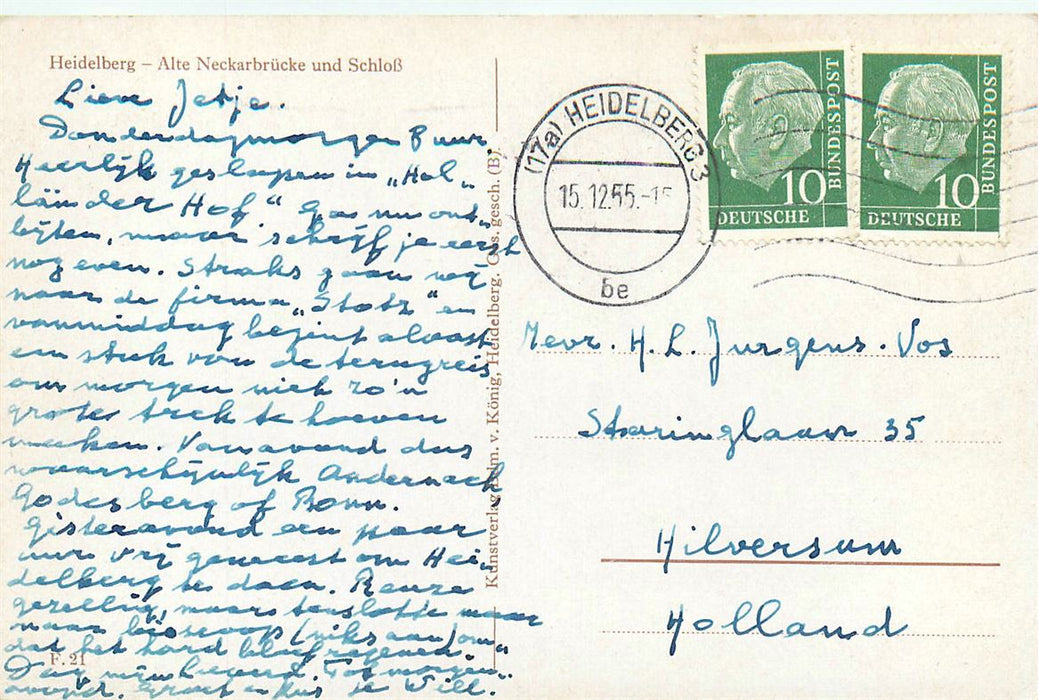 Heidelberg – Alte Neckarbrücke und Schloß
Lieve Jetje.
Donderdagmorgen 8 uur.
Heerlijk geslapen in „Hol„
länder Hof." Ga nu ont„
bijten, maar schrijf je eerst
nog even. Straks gaan wij
naar de firma „Stotz" en
vanmiddag begint alvast
een stuk van de terugreis
om morgen niet zo'n
grote trek te hoeven
maken. Vanavond dus
waarschijnlijk Andernach,
Godesberg of Bonn.
Gisteravond een paar
uur vrij geweest om Hei„
delberg te doen. Reuze
gezellig, maar tenslotte maar
naar bioscoop (niks aan) om„
dat het hard bleef regenen.
Dag mijn lieverd. Tot morgen„
avond. Groet en kus je Will.
F. 21
Kunstverlag Edm. v. König, Heidelberg. Ges. gesch. (B)
(17a) HEIDELBERG 3
15.12.55.-15
be
10
DEUTSCHE
BUNDESPOST
10
DEUTSCHE
BUNDESPOST
Mevr. H. L. Jurgens-Vos
Staringlaan 35
Hilversum
Holland